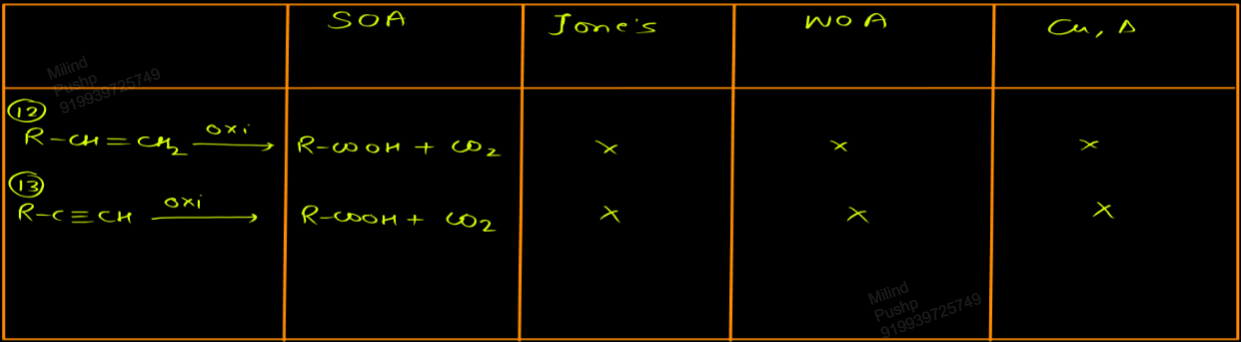 SOA Jone's WOA Cu, Δ
⑫
R-CH=CH₂ —oxi→ R-COOH + CO₂ × × ×
⑬
R-C≡CH —oxi→ R-COOH + CO₂ × × ×
Milind
Pushp
919939725749
Milind
Pushp
919939725749